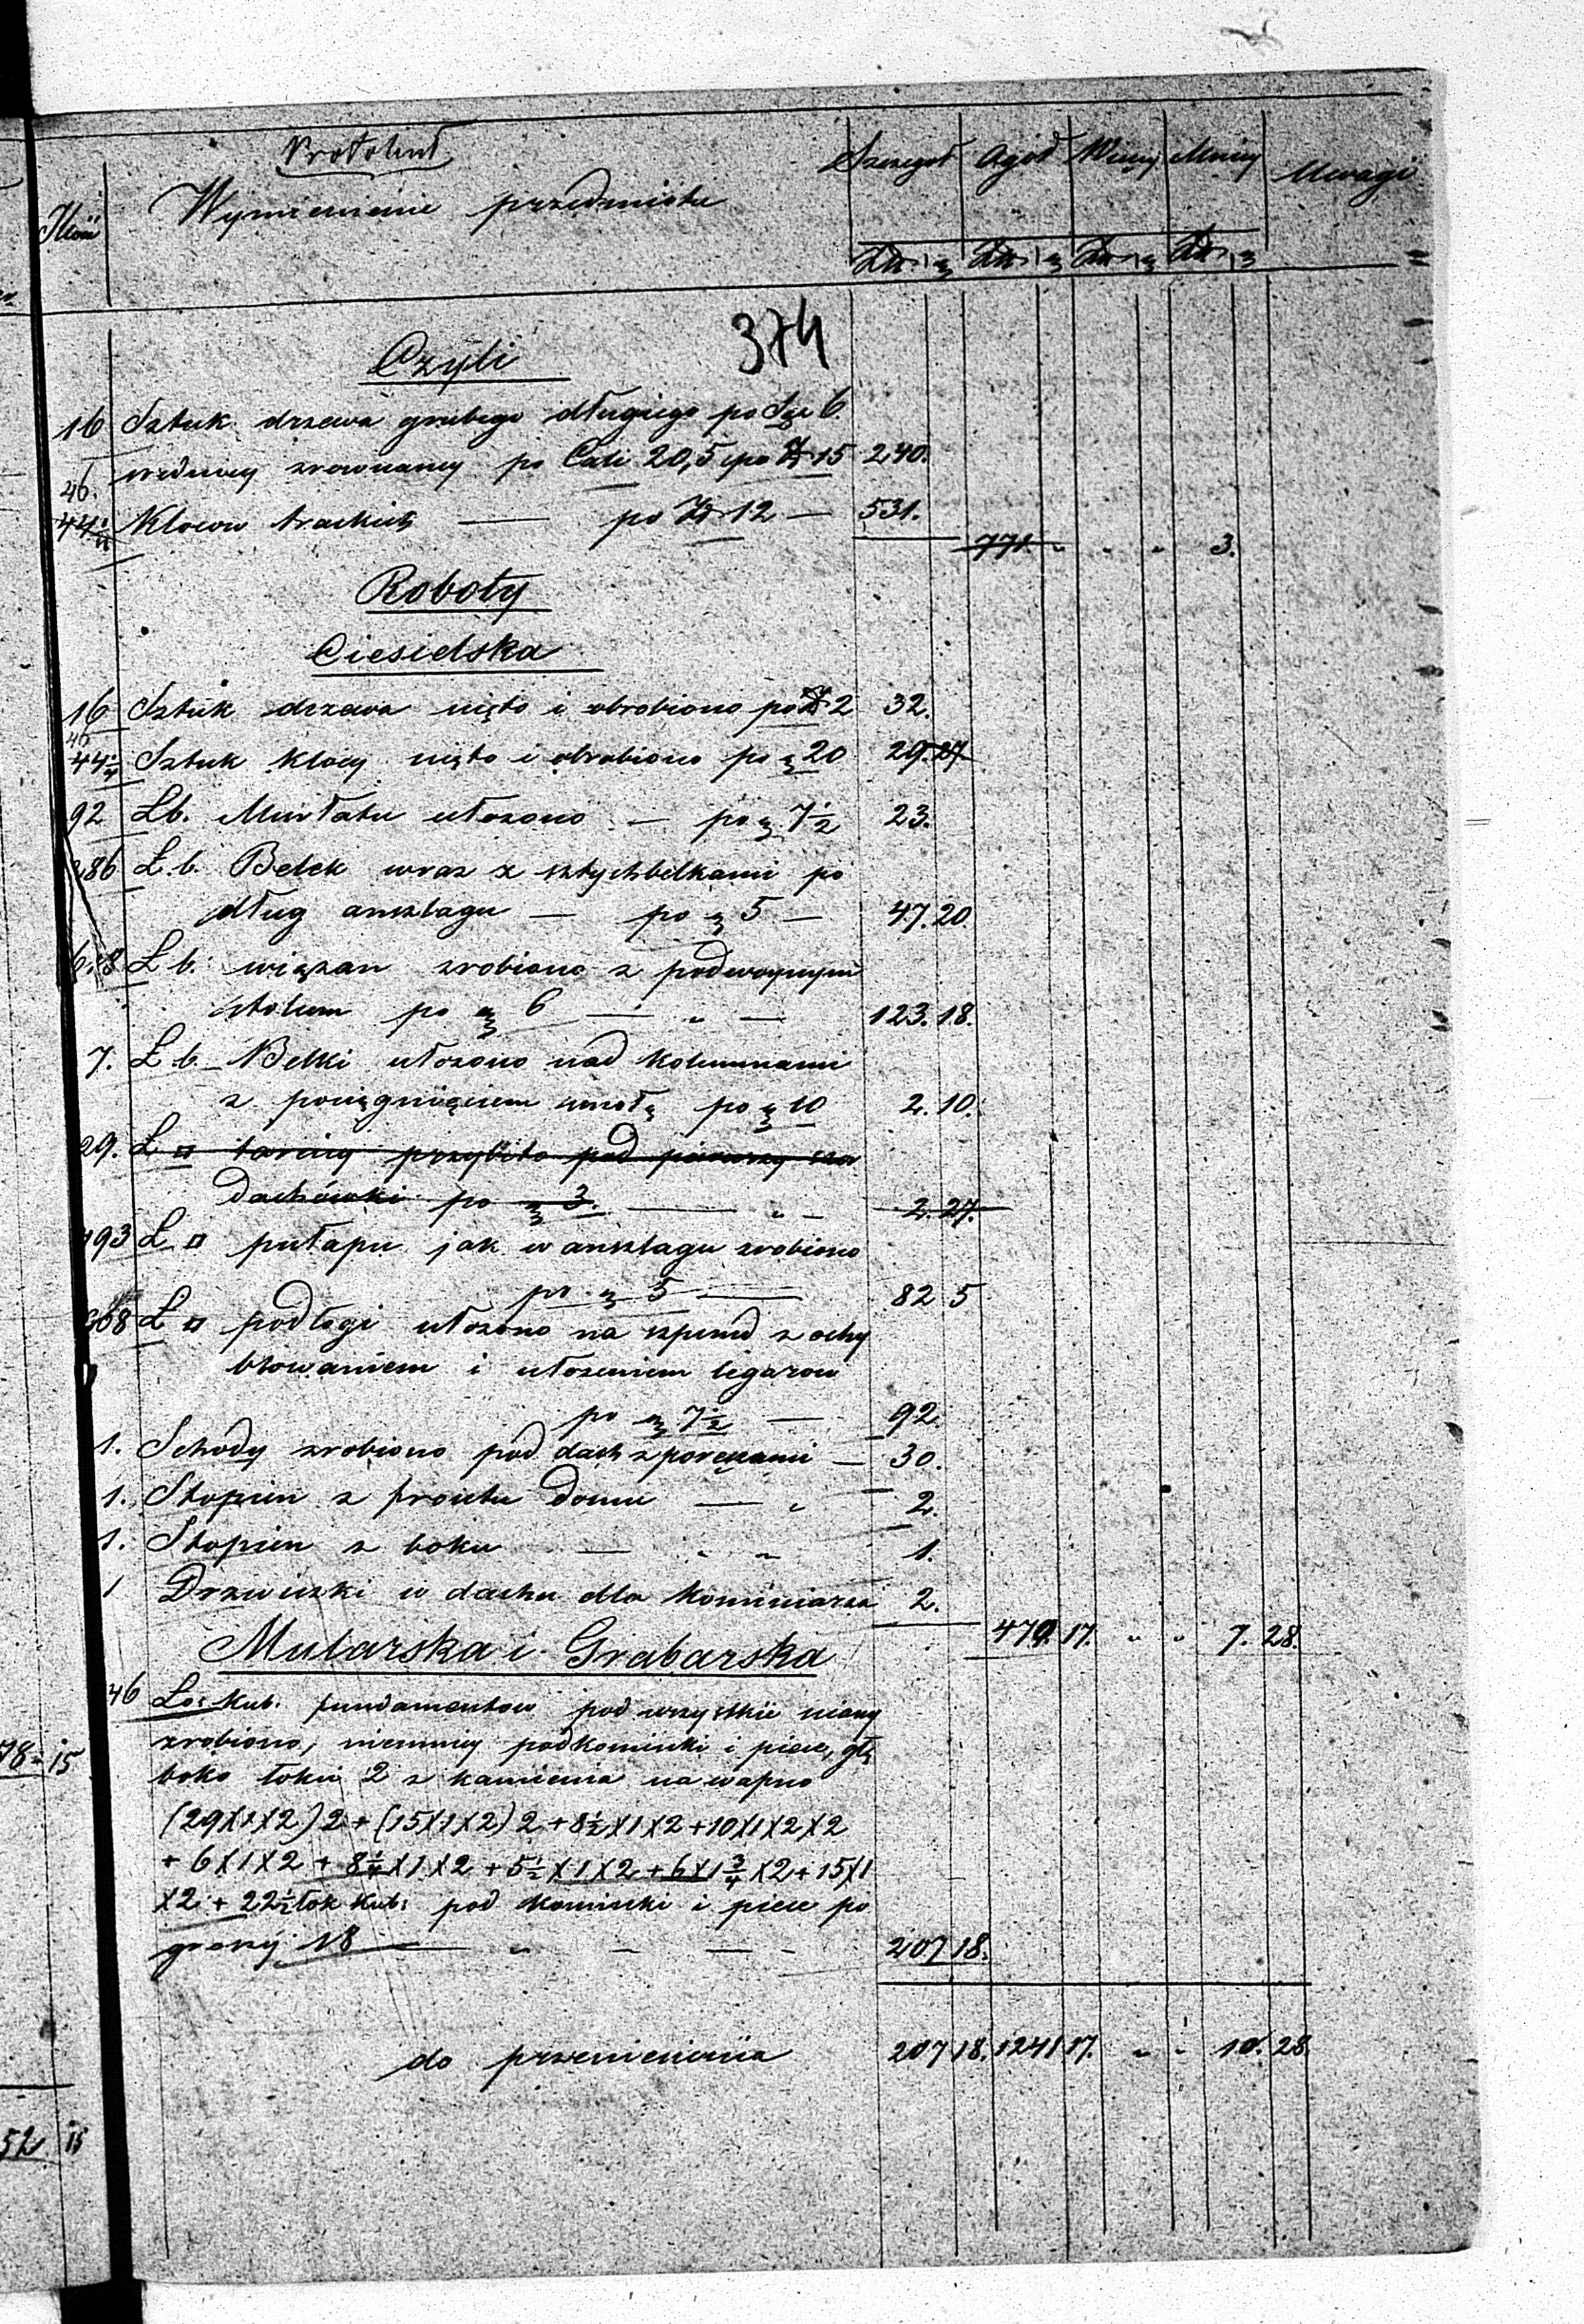 Protokuł
Ilość Wymienienie przedmiotu Szczegół Ogół Więcy Mniey Uwagi
Złr. g Złr. g Złr. g Złr. g
374
Czyli
16 Sztuk drzewa grubego długiego po Sąż 6.
średnicy zrownaney po Cali 20,5 po Zł 15 240.
46.
44 Klocow trackich — po Zł 12 — 531.
771. " " " 3.
Roboty
Ciesielska
16 Sztuk drzewa cięto i obrobiono po Zł 2 32.
46
44 Sztuk klocy cięto i obrobiono po g 20 29. 27
92 Ł b. Murłatu ułozono — po g 7½ 23.
286 Ł. b. Belek wraz z sztychbelkami po
dług anszlagu — po g 5 — 47. 20.
618 Ł b. wiązan zrobiono z podwoynym
stolum po g 6 — " — 123. 18.
7. Ł b. Belki ułozono nad kolumnami
z pociągnięciem po g 10 2. 10.
29. Ł □ tarcicy przybito pod pierwszy
dachówki po g 3. — " — 2. 27.
493 Ł □ pułapu jak w anszlagu zrobiono
po g 5 — 82 5
368 Ł □ podłogi ułozono na szpund z ochy
blowaniem i ułozeniem legarow
po g 7½ — 92.
1. Schody zrobiono pod dach z poręczami — 30.
1. Stopien z frontu domu — " — 2.
1. Stopien z boku — " " 1.
1 Drzwiczki w dachu dla kominiarza 2.
479. 17. " " 7. 28.
Mularska i Grabarska
46 Ło: Kub. fundamentow pod wszystkie sciany
zrobiono, niemniey pod kominki i piece, głę
boko łokci 2 z kamienia na wapno
(29X1X2)2+(15X1X2)2+8½X1X2+10X1X2X2
+6X1X2+8¼X1X2+5½X1X2+6X1¾X2+15X1
X2+22½ łok Kub: pod kominki i piece po
groszy 18 — " — — - 207 18.
do przeniesienia 207 18. 1241 17. " " 10. 28.
78 - 15
52 15